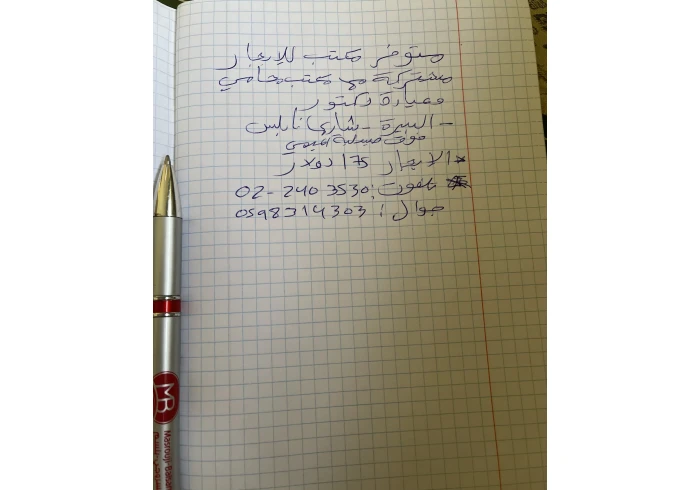 متوفر مكتب للإيجار
مشتركة مع مكتب محامي
وعيادة دكتور
- البيرة - شارع نابلس
فوق صيدلية
* الايجار 175 دولار
تلفون: 02-2403530
جوال: 0598214303
MB